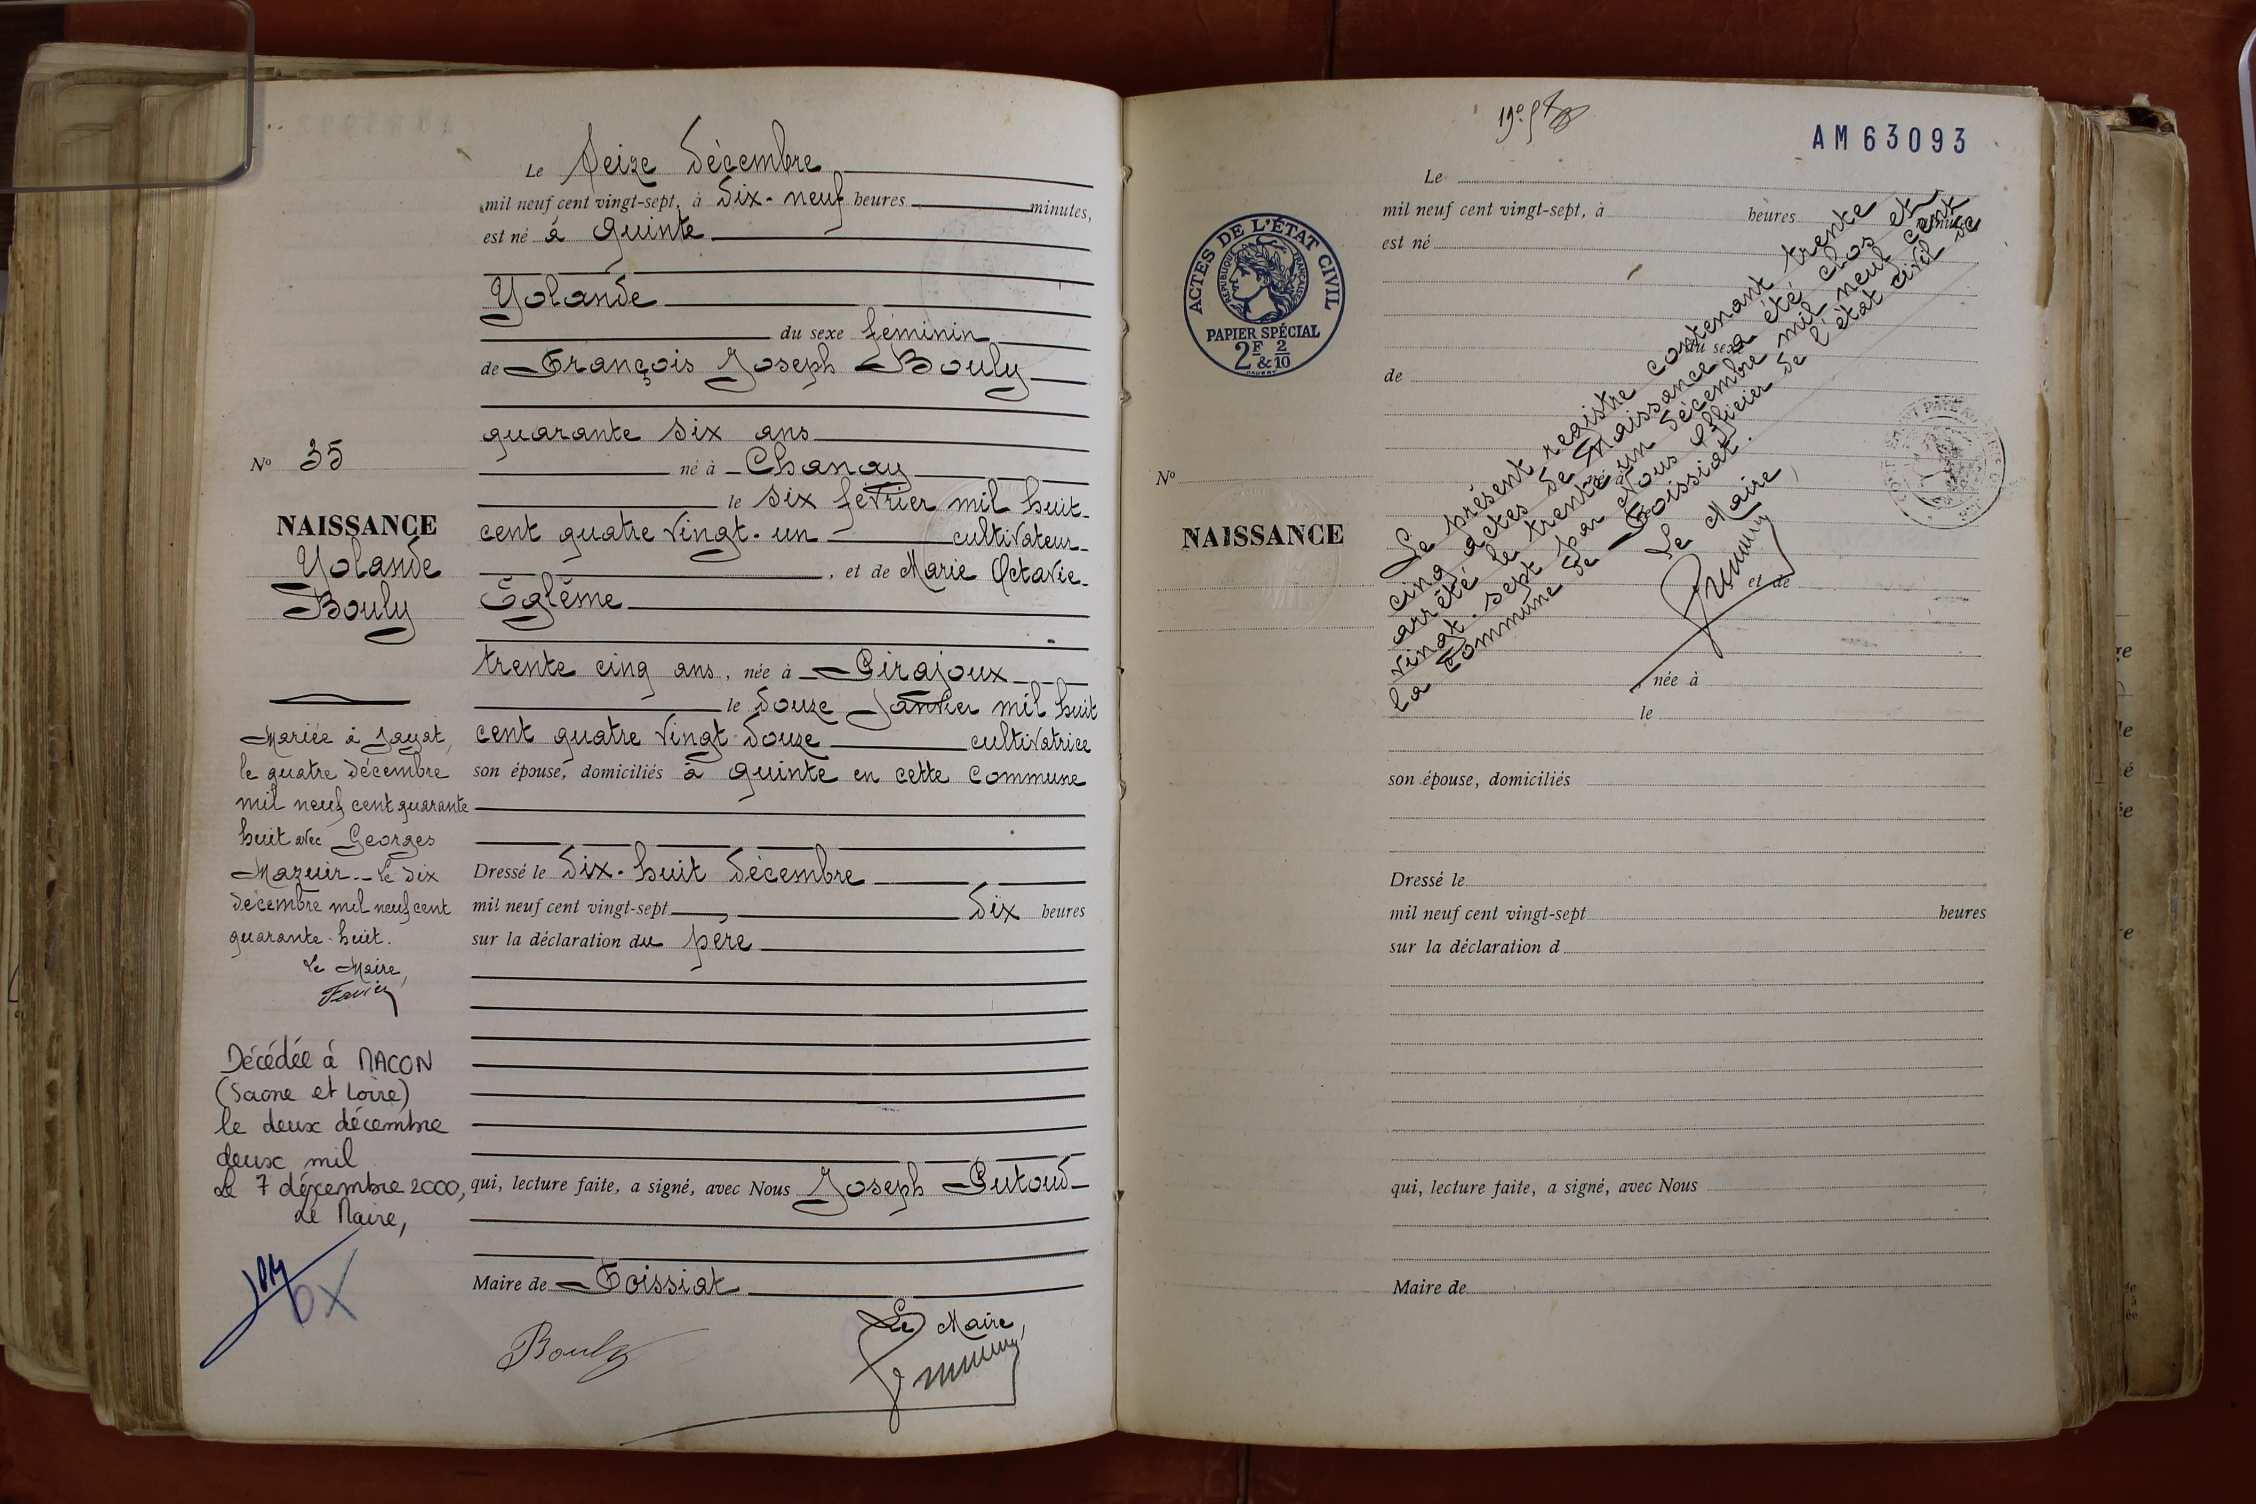 Le Seize décembre
mil neuf cent vingt-sept, à dix-neuf heures minutes,
est né à Quinte
Yolande
du sexe féminin
de François Joseph Bouly
quarante six ans
né à Chanay
le six février mil huit
cent quatre vingt-un cultivateur
, et de Marie Octavie
Eglème
trente cinq ans, née à Cirajoux
le douze Janvier mil huit
cent quatre vingt douze cultivatrice
son épouse, domiciliés à Quinte en cette commune
Dressé le dix-huit décembre
mil neuf cent vingt-sept, dix heures
sur la déclaration du père
qui, lecture faite, a signé, avec Nous Joseph Putoud
Maire de Foissiat
Le Maire,
Bouly
No 35
NAISSANCE
Yolande
Bouly
Mariée à Jayat,
le quatre décembre
mil neuf cent quarante
huit avec Georges
Mazuir. - Le dix
décembre mil neuf cent
quarante-huit.
Le Maire,
Décédée à MACON
(Saone et Loire)
le deux décembre
deux mil
Le 7 décembre 2000,
Le Maire,
19e
AM63093
ACTES DE L'ÉTAT CIVIL
RÉPUBLIQUE FRANÇAISE
PAPIER SPÉCIAL
2F & 2/10
No
NAISSANCE
Le
mil neuf cent vingt-sept, à heures minutes,
est né
du sexe
de
et de
née à
le
son épouse, domiciliés
Dressé le
mil neuf cent vingt-sept heures
sur la déclaration d
qui, lecture faite, a signé, avec Nous
Maire de
Le présent registre contenant trente
cinq actes de Naissance a été clos et
arrêté le trente un décembre mil neuf cent
vingt-sept par Nous Officier de l'état civil de
la Commune de Foissiat.
Le Maire,